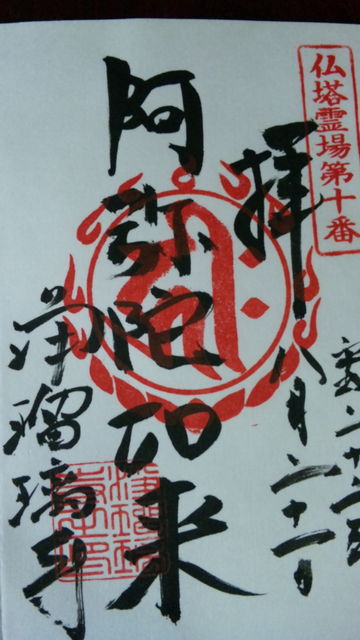 仏塔霊場第十番
拝
八月二十一日
阿弥陀如来
浄瑠璃寺